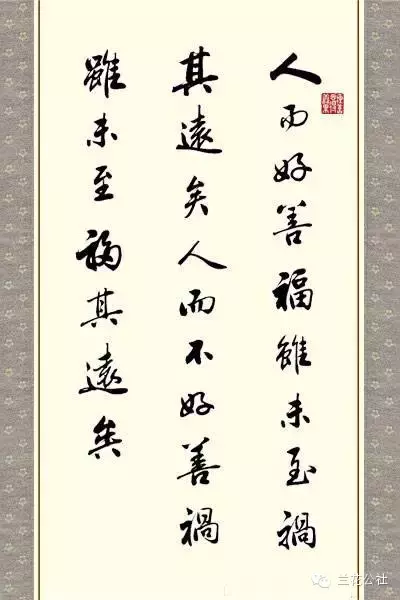 人而好善福雖未至禍
其遠矣人而不好善禍
雖未至福其遠矣
兰花公社